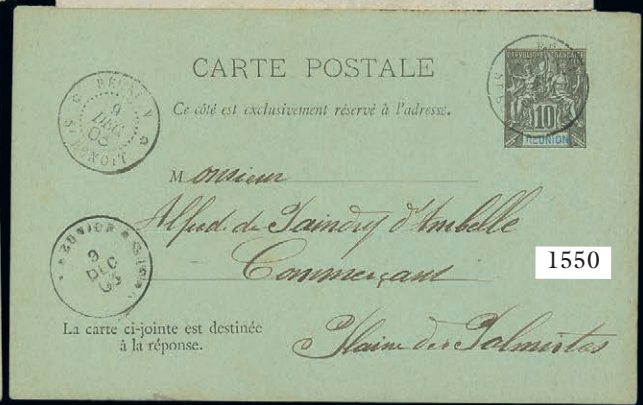 CARTE POSTALE
Ce côté est exclusivement réservé à l'adresse.
RÉUNION
9
DEC
03
ST BENOIT
10
RÉUNION
Monsieur
Alfred de Jaindry d'Ambelle
Commerçant
1550
Plaine des Palmistes
RÉUNION
9
DEC
03
La carte ci-jointe est destinée
à la réponse.